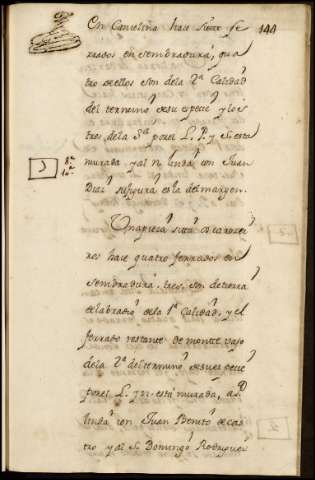 144
En Canceliña hace siete fe
rrados en sembradura, qua
tro de ellos son de la 2ª Calidad
del termino de su especie y los
tres de la 3ª por el L. P. y S. esta
murada y al N. linda con Juan
Dias su figura es la del margen.
Una pieza sitta
res hace quatro ferrados en
sembradura, tres son de tierra
de labradio de la 1ª Calidad, y el
ferrado restante de monte vajo
de la 2ª del termino de su especie
por el L. y N. está murada, a P.
linda con Juan Benito de Cas
tro y al S. Domingo Rodriguez